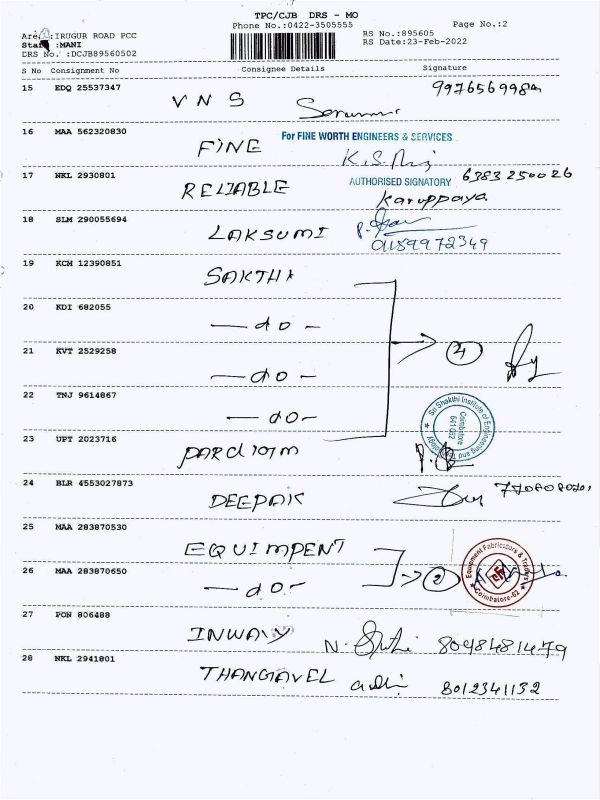 TPC/CJB DRS - MO
Phone No.:0422-3505555
Page No.:2
Area :IRUGUR ROAD PCC
RS No.:895605
Staff :MANI
RS Date:23-Feb-2022
DRS No. :DCJB89560502
S No Consignment No Consignee Details Signature
15 EDQ 25537347
VNS
16 MAA 562320830
FINE
For FINE WORTH ENGINEERS & SERVICES
AUTHORISED SIGNATORY
17 NKL 2930801
RELIABLE
6383250026
Karuppaya
18 SLM 290055694
LAKSUMI
19 KCM 12390851
SAKTHI
20 KDI 682055
— do —
21 KVT 2529258
— do —
4
22 TNJ 9614867
— do —
Sri Shakthi Institute of Engineering and Technology
Coimbatore
641 062
23 UPT 2023716
24 BLR 4553027873
DEEPAK
25 MAA 283870530
EQUIMPENT
26 MAA 283870650
— do —
2
Equipment Fabricators & Traders
Coimbatore-62
27 PON 806488
INWAY
8098481479
28 NKL 2941801
THANGAVEL
8012341132